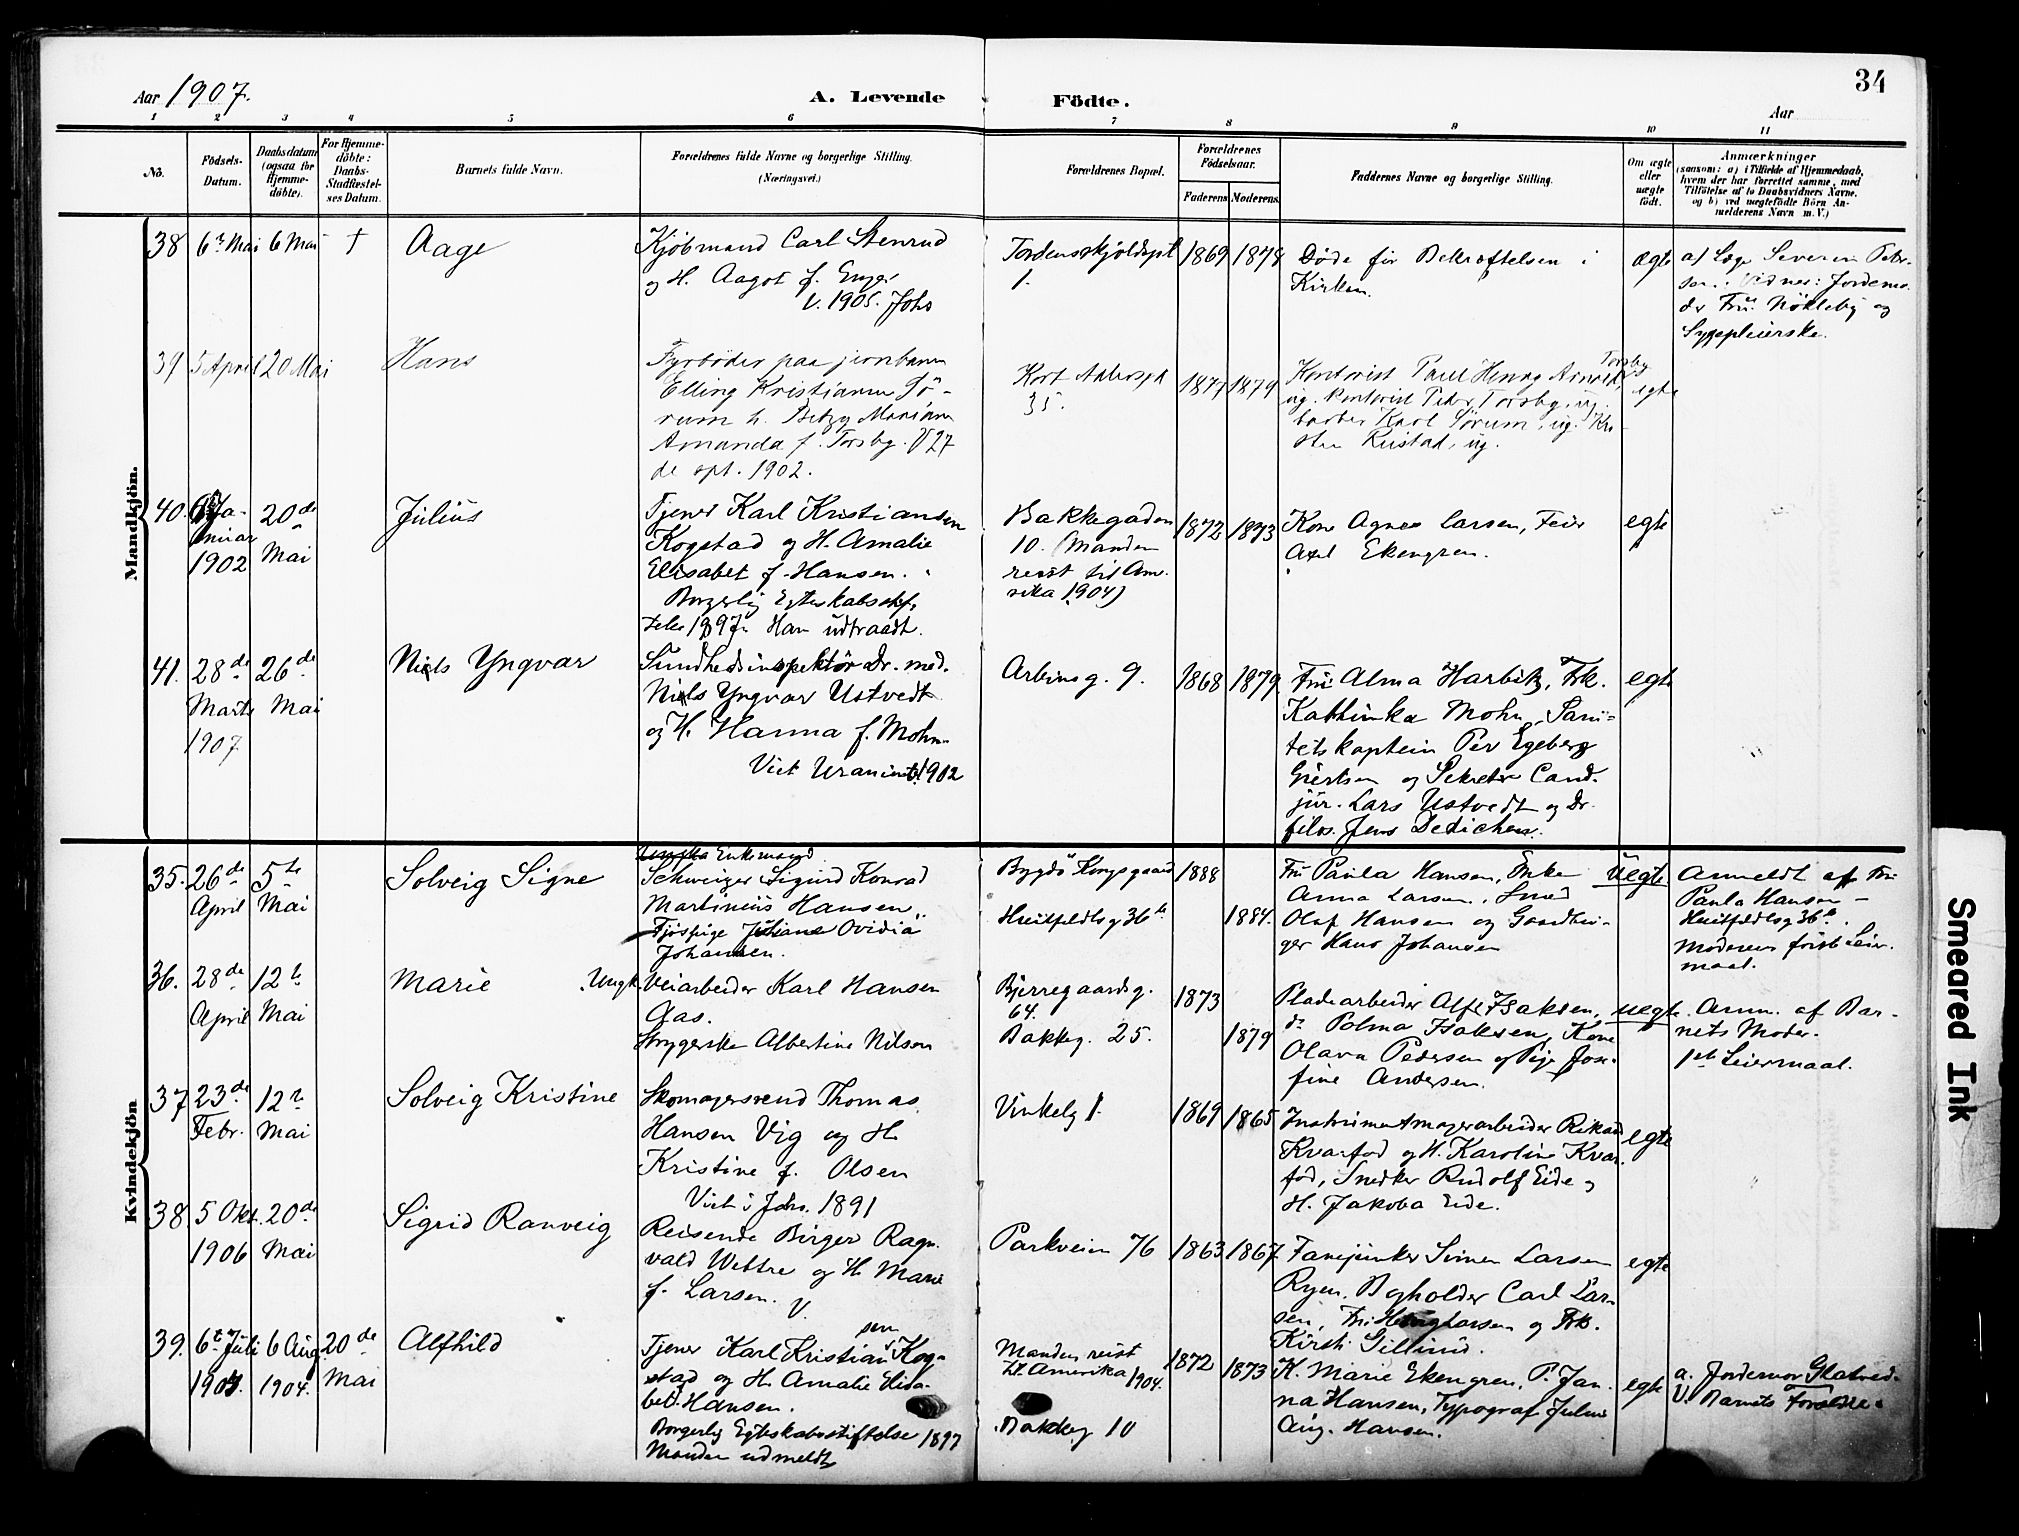 34
Aar 1907.
A. Levende Födte.
Aar
1 2 3 4 5 6 7 8 9 10 11
No.
Födsels-Datum.
Daabsdatum (ogsaa for Hjemme-döbte).
For Hjemme-döbte: Daabs-Stadfæstel-ses Datum.
Barnets fulde Navn.
Forældrenes fulde Navne og borgerlige Stilling.
(Næringsvei.)
Forældrenes Bopæl.
Forældrenes Födselsaar.
Faderens Moderens
Faddernes Navne og borgerlige Stilling.
Om ægte eller uægte födt.
Anmærkninger
(saasom: a) i Tilfælde af Hjemmedaab, hvem der har forrettet samme, med Tilföielse af to Daabsvidners Navne. og b) ved uægtefödte Börn Anmelderens Navn m. V.)
Mandkjön.
38 6te Mai 6 Mai † Aage
Kjöbmand Carl Stenrud
og H. Aagot f. Enger
V. 1905. Johs
Tordenskjoldspl 1.
1869 1878
Döde før Bekræftelsen i
Kirken.
ægte
a) Læge Severin Peter-
sen. Vidnes: Jordemo-
der Fru Nökleby og
Sygepleierske.
39 5 April 20 Mai Hans
Fyrböder paa jernbanen
Elling Kristjansen Sö-
rum h. Betzy Mariane
Amanda f. Torsby. V 27
de spt. 1902.
Kort Adelersgt
35.
1877 1879
Kontorist Paul Henry Arnold Torsby
ug. Kontorist Peter Torsby, ug.
barber Karl Sörum, ug. Kri-
stin Rustad, ug.
egte
40. 6 Ja-
nuar
1902
20de
Mai
Julius
Tjener Karl Kristiansen
Kogstad og H. Amalie
Elisabet f. Hansen.
Borgerlig Egteskabsstif-
telse 1897. Han udtraadt.
Bakkegaden
10. (Manden
reist til Am-
rika 1904)
1872 1873
Kone Agnes Larsen, Feier
Axel Ekengren.
egte
41. 28de
Marts
1907
26de
Mai
Niels Yngvar
Sundhedsinspektör Dr. med.
Niels Yngvar Ustvedt
og H. Hanna f. Mohn.
Viet Uranienb. 1902
Arbins g. 9.
1868 1879
Fru Alma Harbitz, Frk.
Kathinka Mohn, Sani-
tetskaptein Per Egeberg
Giertsen og Sekretær Cand.
jur. Lars Ustvedt og Dr.
filos. Jens Dedichen.
egte
Kvindekjön
35. 26de
April
5te
Mai
Solveig Signe
Enkemand
Schweizer Sigurd Konrad
Martinius Hansen,
Tjöspige Juliane Ovidia
Johansen.
Bygdö Kongsgaard
Huitfeldtsg 36b
1888
1884.
Fru Paula Hansen, Enke
Anna Larsen, Smed
Olaf Hansen og Gaardbru-
ger Hans Johansen
Uegte
Anmeldt af Fru
Paula Hansen -
Huitfeldtsg 36b.
Moderens første Leier-
maal.
36. 28de
April
12te
Mai
Marie
Ungk. Veiarbeider Karl Hansen
Aas.
Strygerske Albertine Nilsen
Bjerregaardsg.
64.
Bakkeg. 25.
1873
1879
Pladearbeider Alf Isaksen,
do Palma Isaksen, Kone
Olava Pedersen og Pige Jose-
fine Andersen.
uegte
Anm. af Bar-
nets Moder.
1ste Leiermaal.
37 23de
Febr.
12te
Mai
Solveig Kristine
Skomagersvend Thomas
Hansen Vig og H.
Kristine f. Olsen
Viet i Johs. 1891
Vinkelg 1.
1869 1865
Instrumentmagerarbeider Rikard
Kvarfod og H. Karoline Kvar-
fod, Snedker Rudolf Eide og
H. Jakoba Eide.
egte
38 5 Okt.
1906
20de
Mai
Sigrid Ranveig
Reisende Birger Ragn-
vald Wettre og H. Marie
f. Larsen. V.
Parkveien 76
1863 1867
Fanejunker Simen Larsen
Ryen, Bgholder Carl Lar-
sen, Fru Larsen og Frk.
Kirsti Gillund.
egte
39. 6te Juli
1904.
6 Aug
1904.
20de
Mai
Alfhild
Tjener Karl Kristiansen Kog-
stad og H. Amalie Elisa-
bet Hansen.
Borgerlig Egteskabsstiftelse 1897
Manden udmeldt
Manden reist
til Amerika 1904.
Bakkeg 10
1872 1873
H. Marie Ekengren, P. Jan-
na Hansen, Typograf Julius
Aug. Hansen.
egte
a. Jordemor Glatved.
V. Barnets forældre.
Smeared Ink